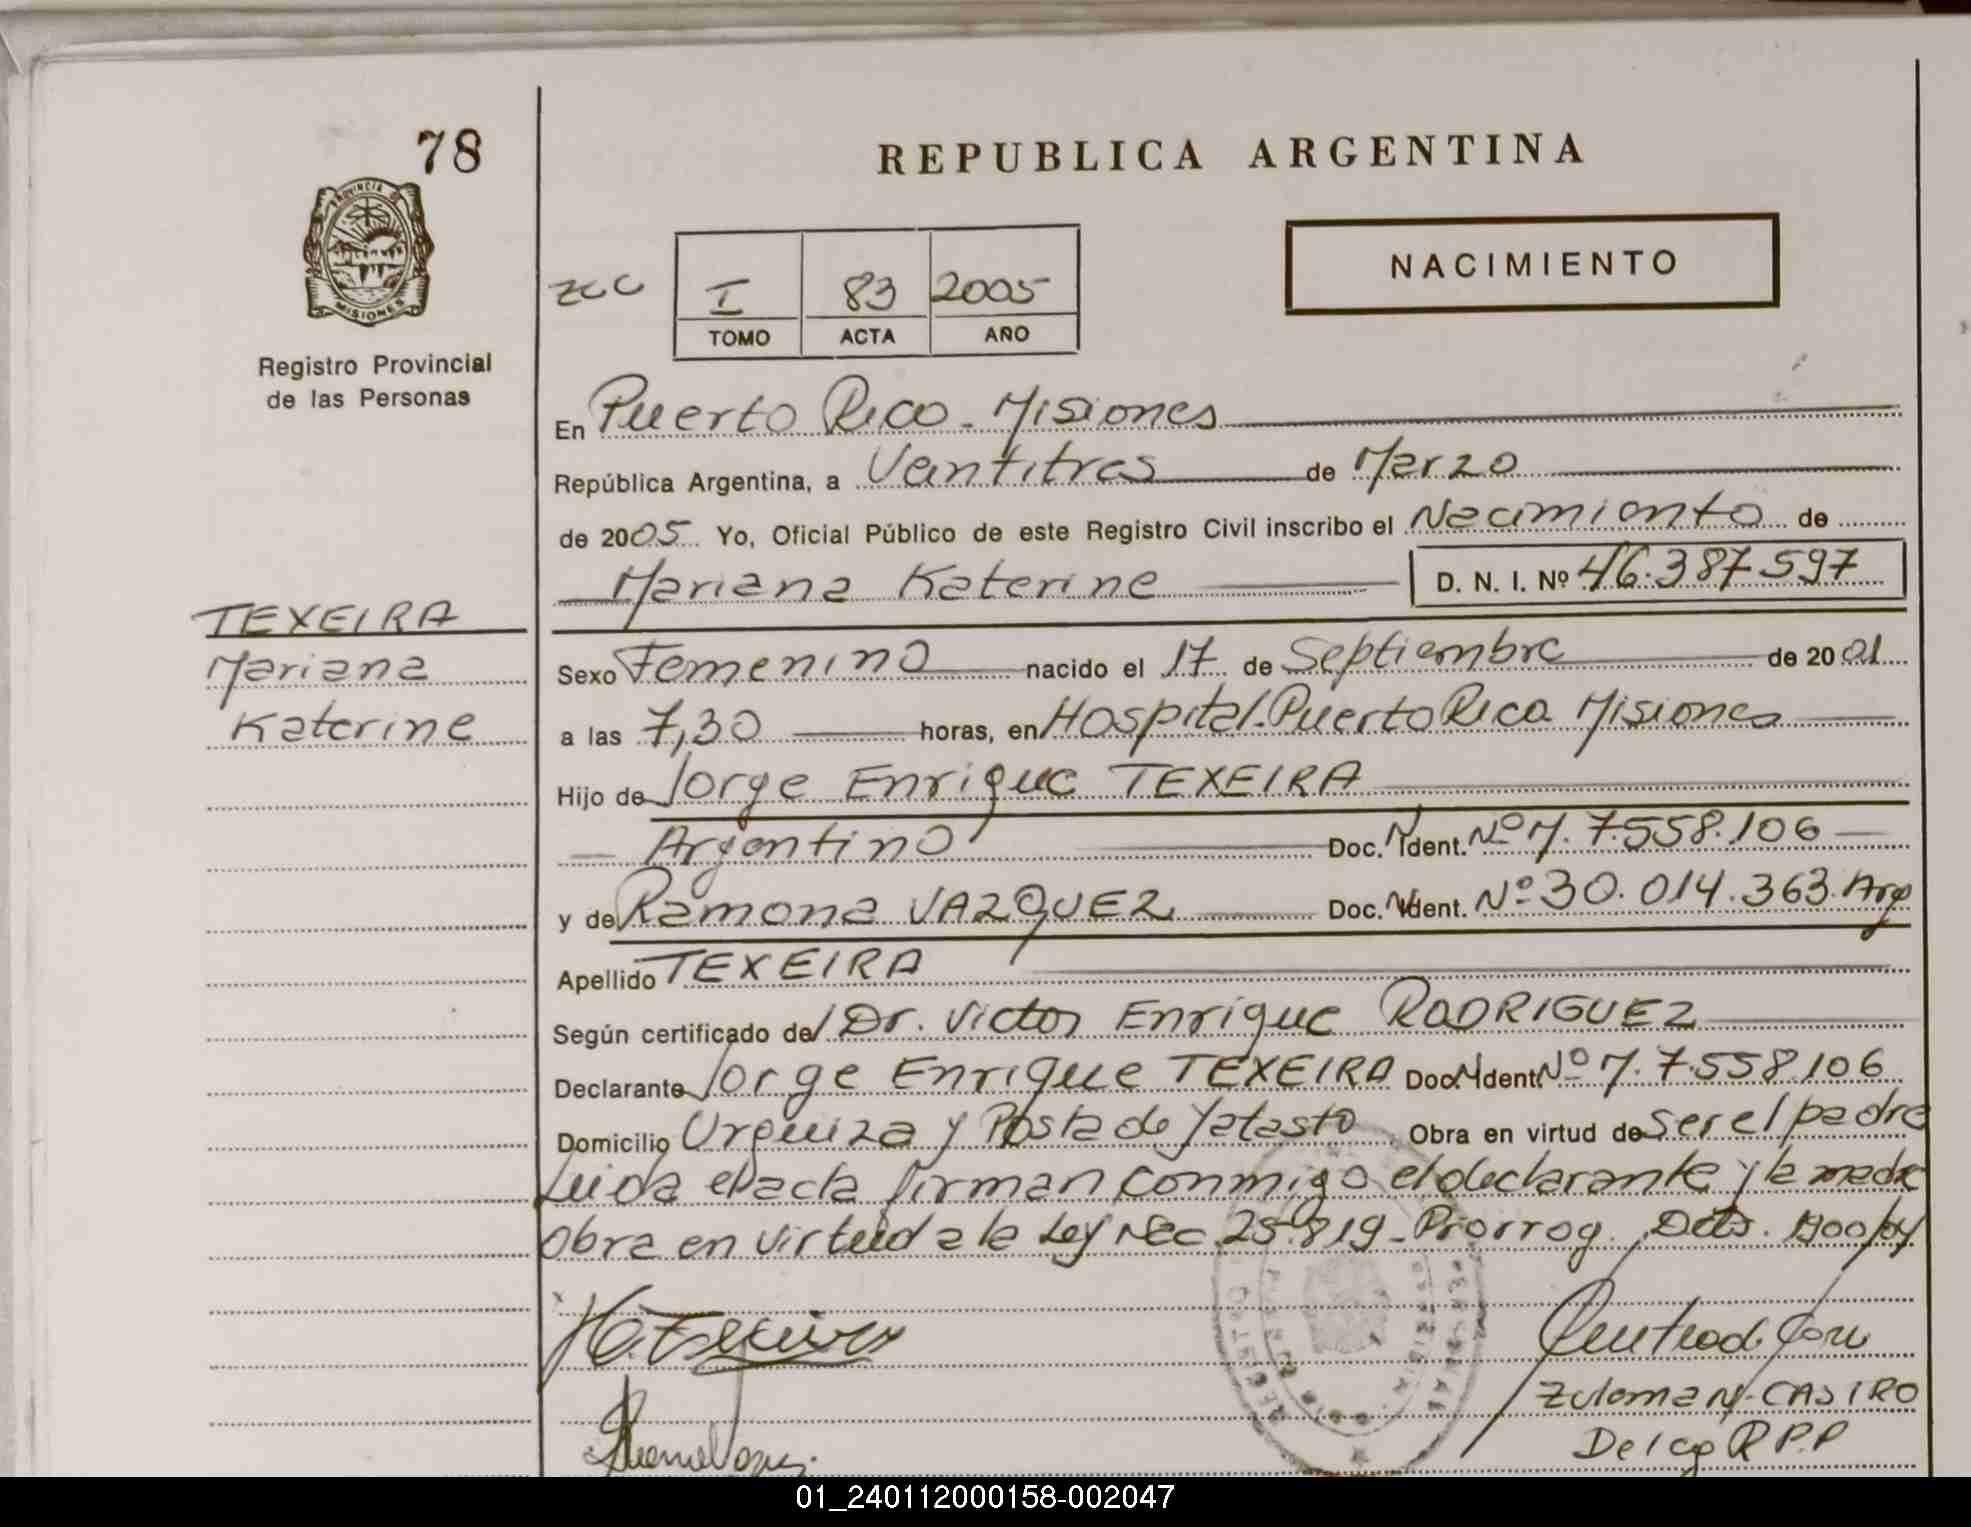 78
REPUBLICA ARGENTINA
PROVINCIA DE MISIONES
Registro Provincial
de las Personas
ZCC
I 83 2005
TOMO ACTA AÑO
NACIMIENTO
En Puerto Rico - Misiones
República Argentina, a Veintitres de Marzo
de 2005 Yo, Oficial Público de este Registro Civil inscribo el Nacimiento de
Mariana Katerine D. N. I. Nº 46.387.597
TEXEIRA
Mariana
Katerine
Sexo Femenino nacido el 17 de Septiembre de 2001
a las 7,30 horas, en Hospital Puerto Rico Misiones
Hijo de Jorge Enrique TEXEIRA
Argentino Doc. N Ident. Nº M. 7.558.106
y de Ramona VAZQUEZ Doc. N Ident. Nº 30.014.363. Arg
Apellido TEXEIRA
Según certificado del Dr. Victor Enrique RODRIGUEZ
Declarante Jorge Enrique TEXEIRA Doc. N Ident Nº M. 7.558.106
Domicilio Urquiza y Posta de Yatasto Obra en virtud de ser el padre
Leida el acta firman conmigo el declarante y la madre
Obra en virtud a la Ley Nac 25.819 - Prorrog. Dcts.
Zulema N. CASTRO
Deleg R.P.P
01_240112000158-002047